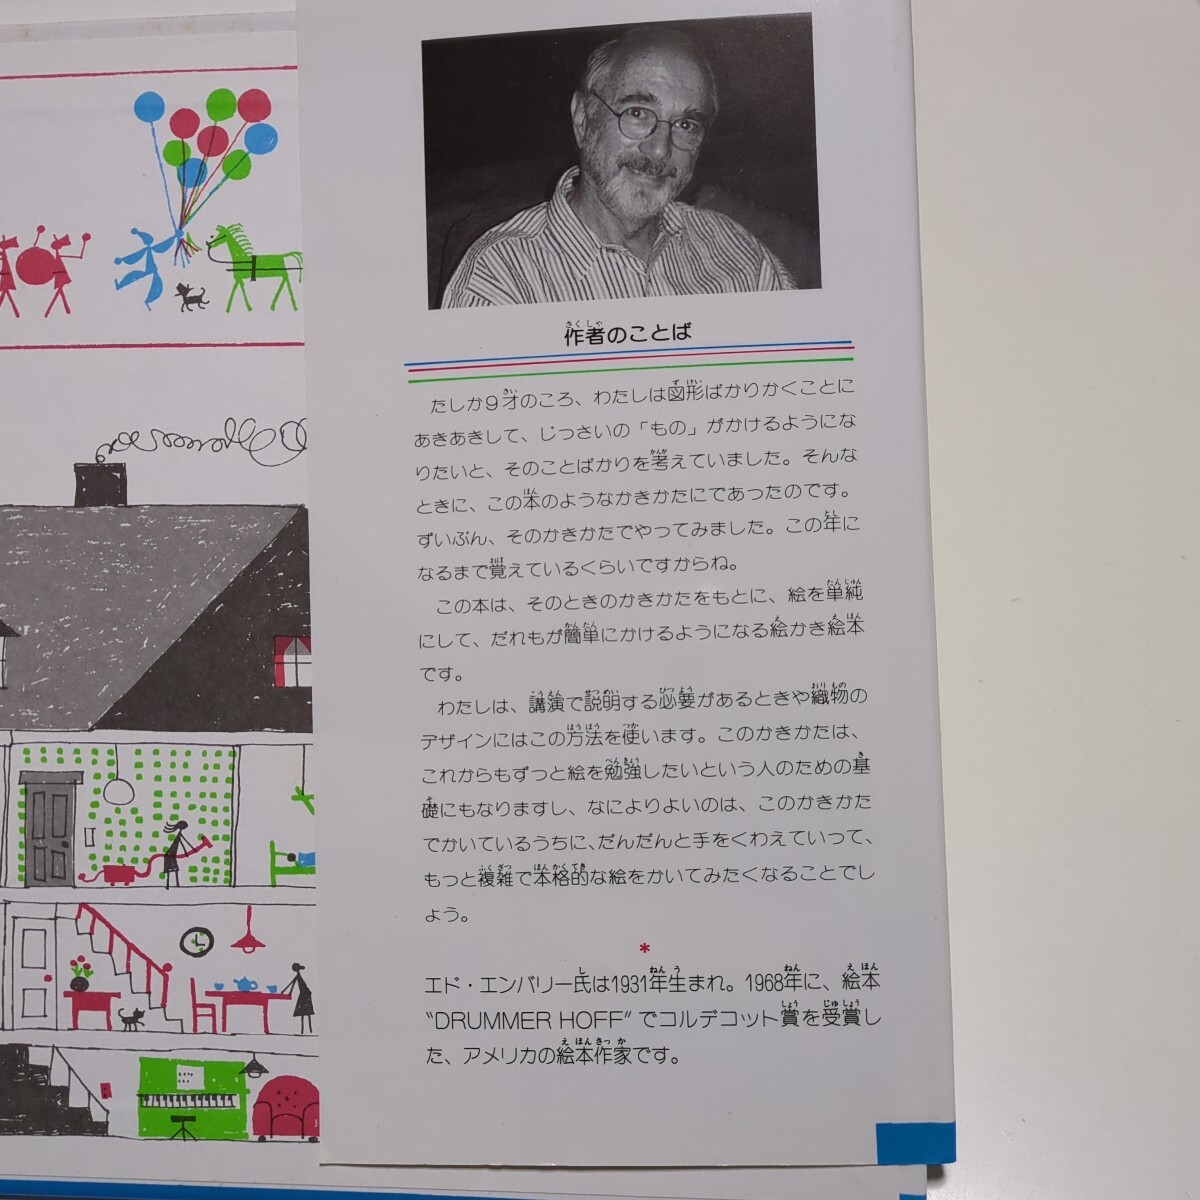 作者のことば
たしか9才のころ、わたしは図形ばかりかくことに
あきあきして、じっさいの「もの」がかけるようにな
りたいと、そのことばかりを考えていました。そんな
ときに、この本のようなかきかたにであったのです。
ずいぶん、そのかきかたでやってみました。この年に
なるまで覚えているくらいですからね。
この本は、そのときのかきかたをもとに、絵を単純
にして、だれもが簡単にかけるようになる絵かき絵本
です。
わたしは、講演で説明する必要があるときや織物の
デザインにはこの方法を使います。このかきかたは、
これからもずっと絵を勉強したいという人のための基
礎にもなりますし、なによりよいのは、このかきかた
でかいているうちに、だんだんと手をくわえていって、
もっと複雑で本格的な絵をかいてみたくなることでし
ょう。
*
エド・エンバリー氏は1931年生まれ。1968年に、絵本
"DRUMMER HOFF"でコルデコット賞を受賞し
た、アメリカの絵本作家です。